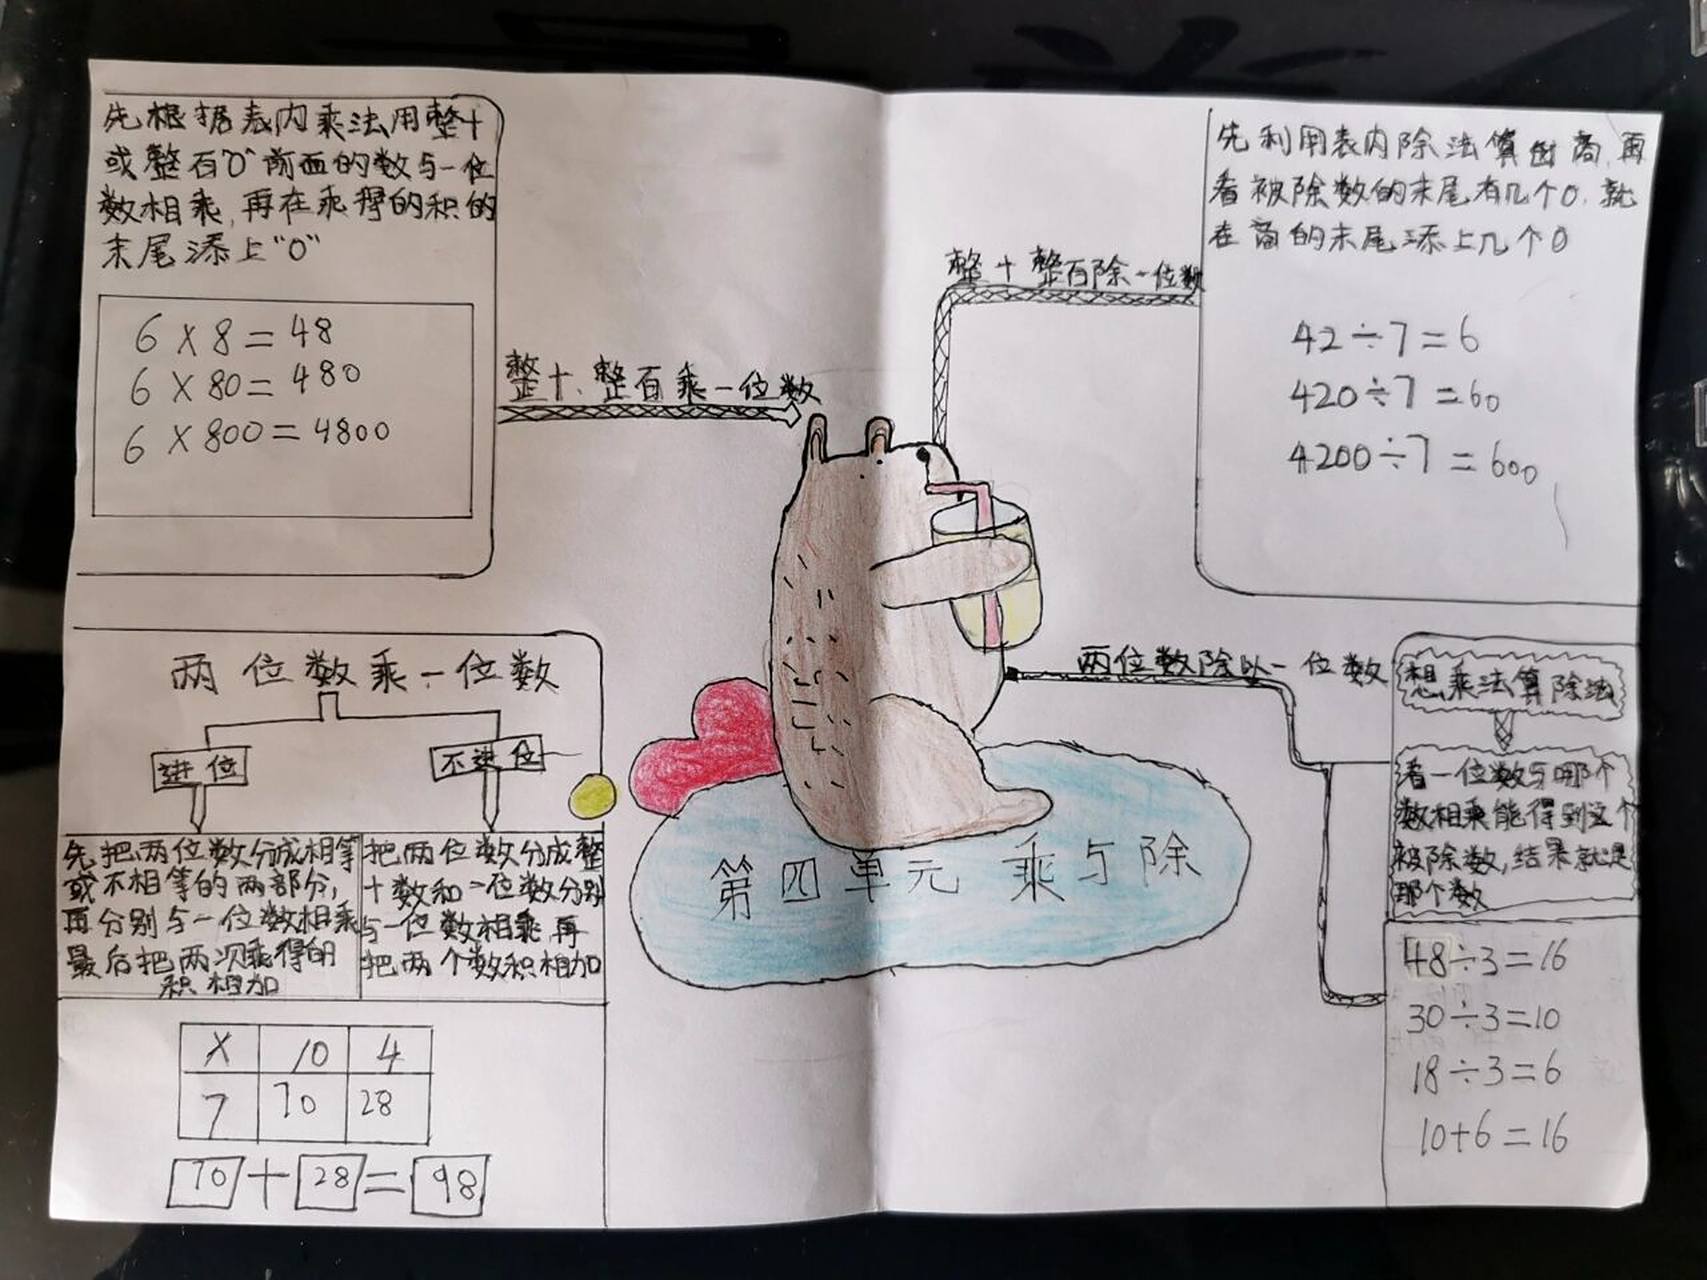 先根据表内乘法用整十
或整百"0"前面的数与一位
数相乘,再在乘得的积的
末尾添上"0"
6×8=48
6×80=480
6×800=4800
整十、整百乘一位数
整十整百除一位数
先利用表内除法算出商,再
看被除数的末尾有几个0,就
在商的末尾添上几个0
42÷7=6
420÷7=60
4200÷7=600
两位数乘一位数
进位
不进位
先把两位数分成相等
或不相等的两部分,
再分别与一位数相乘
最后把两次乘得的
积相加
把两位数分成整
十数和一位数分别
与一位数相乘,再
把两个数积相加
× 10 4
7 70 28
70+28=98
第四单元 乘与除
两位数除以一位数
想乘法算除法
看一位数与哪个
数相乘能得到这个
被除数,结果就是
那个数
48÷3=16
30÷3=10
18÷3=6
10+6=16